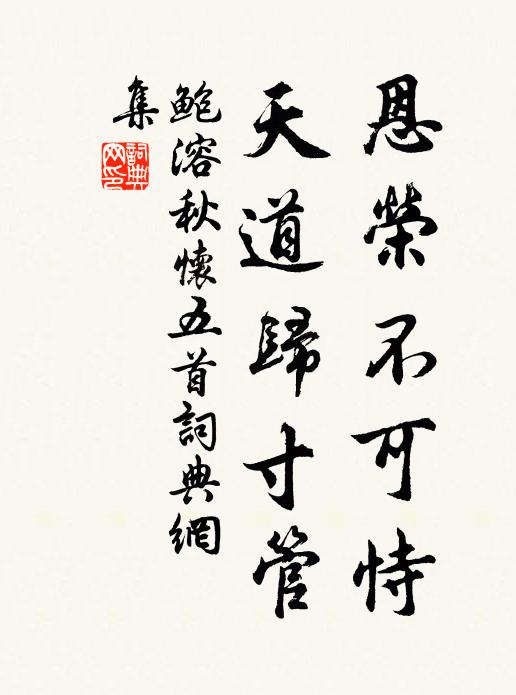 恩榮不可恃
天道歸寸管
鮑溶秋懷五首詞典網
集
詞典
网印